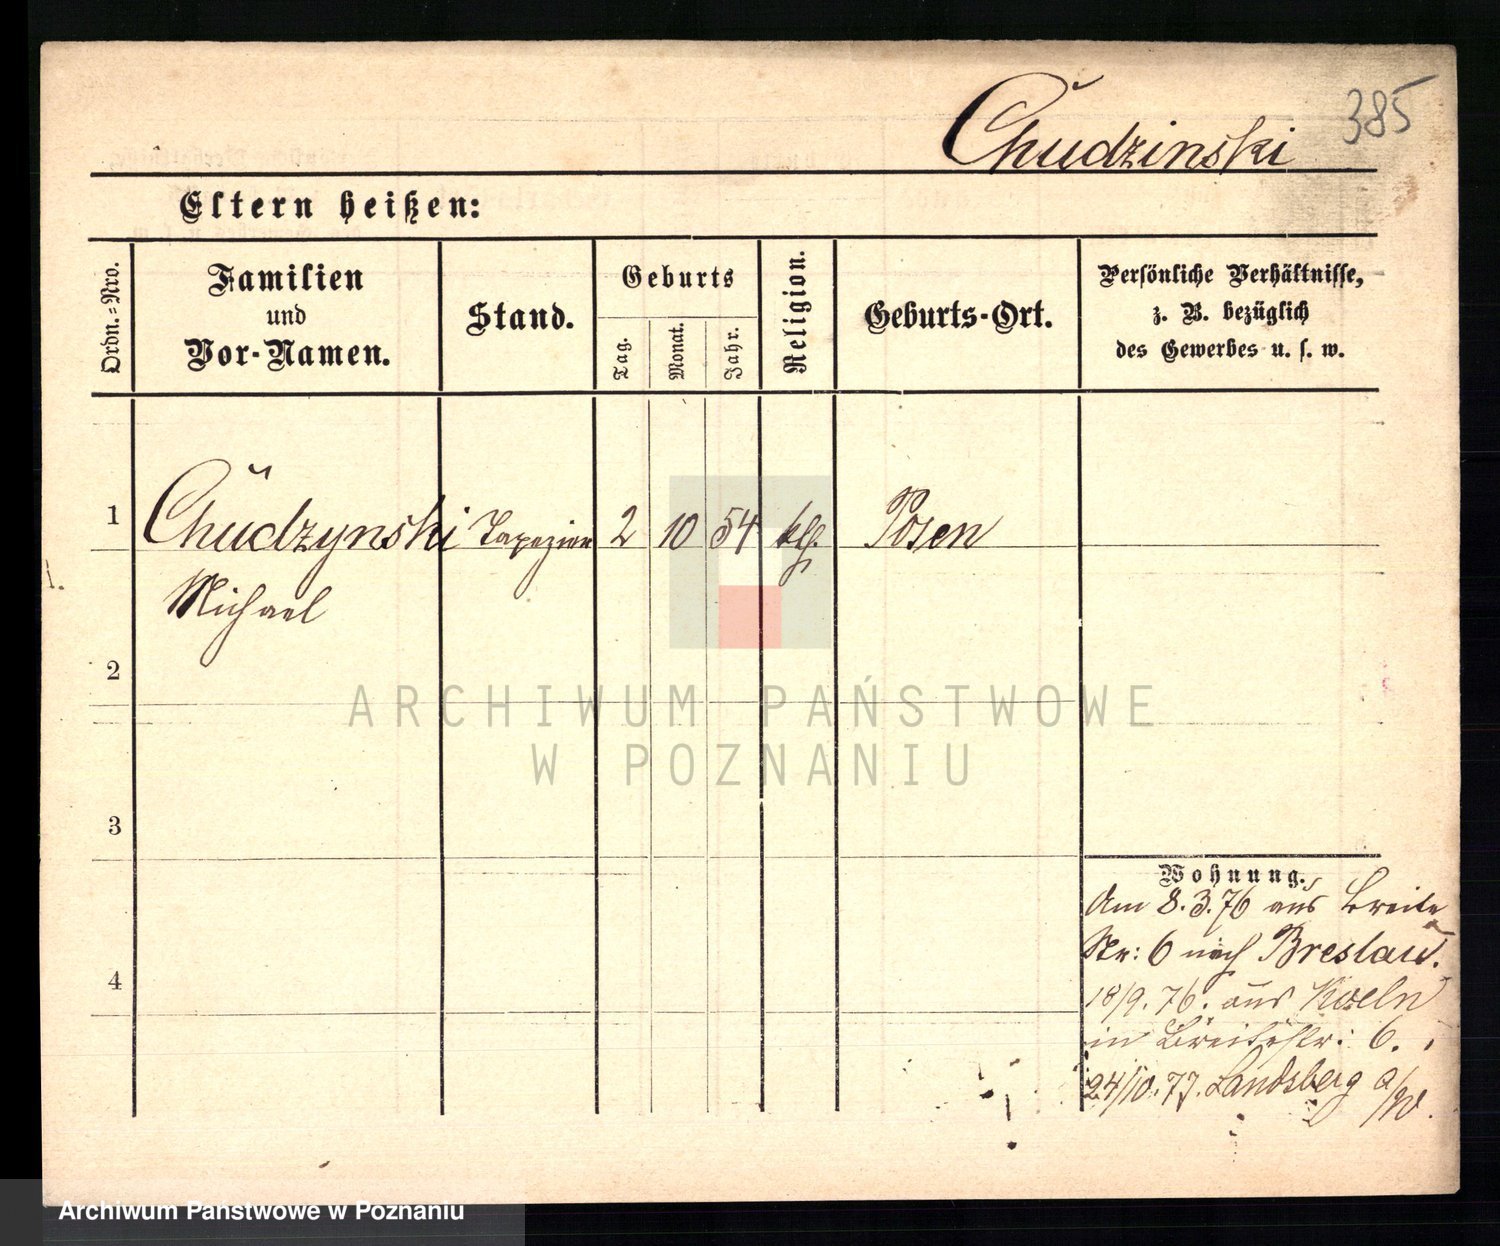 385
Chudzinski
Eltern heißen:
Ordn.-Nro.
Familien
und
Vor-Namen.
Stand.
Geburts
Tag.
Monat.
Jahr.
Religion.
Geburts-Ort.
Persönliche Verhältnisse,
z. B. bezüglich
des Gewerbes u. s. w.
1 Chudzynski Tapezier 2 10 54 kth. Posen
Michael
1.
2
3
4
ARCHIWUM PAŃSTWOWE
W POZNANIU
Wohnung.
Am 8.3.76 aus Breite
Str: 6 nach Breslau.
18/9.76. aus Koeln
in Breitestr: 6.
24/10.77. Landsberg a/W.
Archiwum Państwowe w Poznaniu